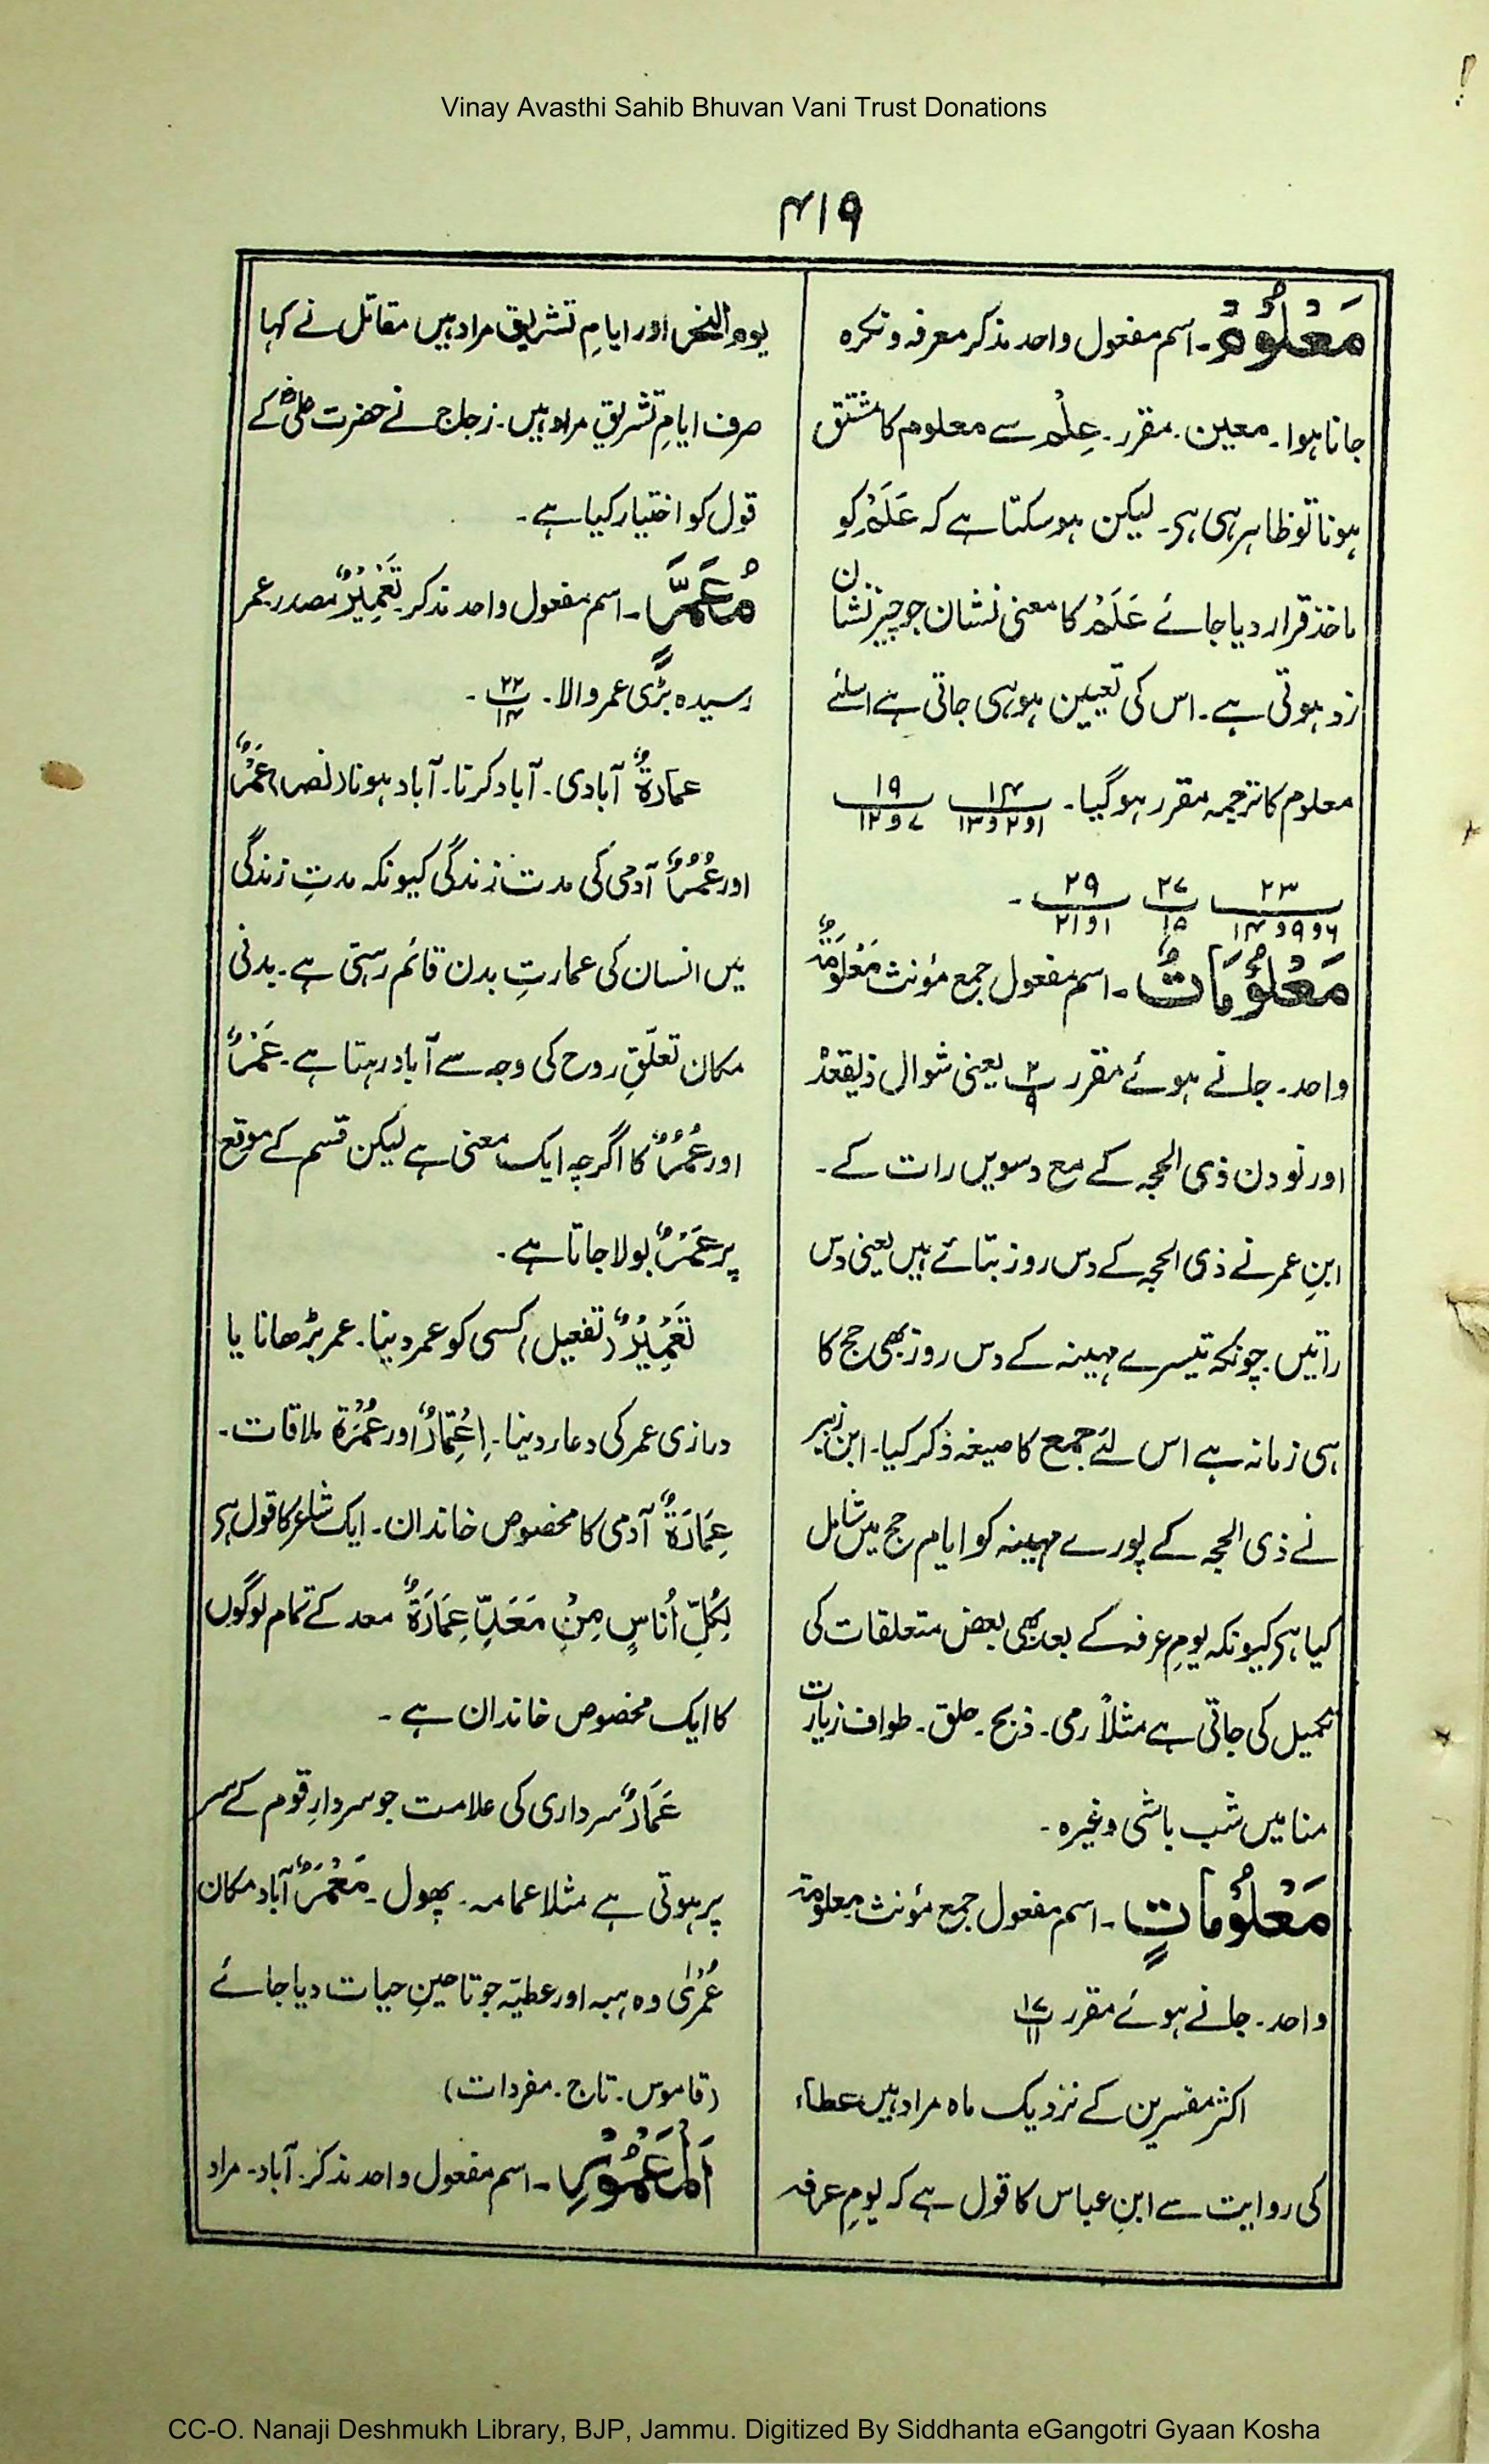 Vinay Avasthi Sahib Bhuvan Vani Trust Donations
۴۱۹
مَعْلُوْمٌ۔ اسم مفعول واحد مذکر معرفہ و نکرہ
جانا ہوا۔ معین۔ مقرر۔ عِلْمٌ سے معلوم کا مشتق
ہونا تو ظاہر ہی ہے۔ لیکن ہو سکتا ہے کہ عَلَمٌ کو
ماخذ قرار دیا جائے عَلَمٌ کا معنی نشان جو چیز نشان
زد ہوتی ہے۔ اس کی تعیین ہو ہی جاتی ہے اسلئے
معلوم کا ترجمہ مقرر ہو گیا۔ ۱۴ / ۱و۲و۱۳ ۱۹ / ۷و۱۲
۲۳ / ۶و۹و۱۴ ۲۷ / ۱۵ ۲۹ / ۱و۲۱ ۔
مَعْلُوْمَاتٌ۔ اسم مفعول جمع مؤنث مَعْلُوْمَۃٌ
واحد۔ جانے ہوئے مقرر ۲ / ۹ یعنی شوال ذیقعدہ
اور نو دن ذی الحجہ کے مع دسویں رات کے۔
ابنِ عمر نے ذی الحجہ کے دس روز بتائے ہیں یعنی دس
راتیں۔ چونکہ تیسرے مہینہ کے دس روز بھی حج کا
ہی زمانہ ہے اس لئے جمع کا صیغہ ذکر کیا۔ ابن زبیر
نے ذی الحجہ کے پورے مہینہ کو ایام حج میں شامل
کیا ہے کیونکہ یومِ عرفہ کے بعد بھی بعض متعلقات کی
تکمیل کی جاتی ہے مثلاً رمی۔ ذبح۔ حلق۔ طواف زیارت
منا میں شب باشی وغیرہ۔
مَعْلُوْمَاتٍ۔ اسم مفعول جمع مؤنث معلومۃ
واحد۔ جانے ہوئے مقرر ۱۷ / ۱۱
اکثر مفسرین کے نزدیک ماہ مراد ہیں عطاء
کی روایت سے ابنِ عباس کا قول ہے کہ یومِ عرفہ
یوم النحر اور ایامِ تشریق مراد ہیں مقاتل نے کہا
صرف ایامِ تشریق مراد ہیں۔ زجاج نے حضرت علیؓ کے
قول کو اختیار کیا ہے۔
مُعَمَّرٍ۔ اسم مفعول واحد مذکر۔ تَعْمِیْرٌ مصدر۔ عمر
رسیدہ بڑی عمر والا۔ ۲۲ / ۱۴ ۔
عمَارَۃٌ آبادی۔ آباد کرنا۔ آباد ہونا (نصر) عَمْرٌ
اور عُمُرٌ آدمی کی مدت زندگی کیونکہ مدتِ زندگی
میں انسان کی عمارتِ بدن قائم رہتی ہے۔ بدنی
مکان تعلّقِ روح کی وجہ سے آباد رہتا ہے۔ عَمْرٌ
اور عُمُرٌ کا اگرچہ ایک معنی ہے لیکن قسم کے موقع
پر عَمْرٌ بولا جاتا ہے۔
تَعْمِیْرٌ (تفعیل) کسی کو عمر دینا۔ عمر بڑھانا یا
درازی عمر کی دعا دینا۔ اِعْتِمَارٌ اور عُمْرَۃٌ ملاقات۔
عِمَارَۃٌ آدمی کا مخصوص خاندان۔ ایک شاعر کا قول ہے
لِکُلِّ اُنَاسٍ مِنْ مَعَدٍّ عِمَارَۃٌ معد کے تمام لوگوں
کا ایک مخصوص خاندان ہے۔
عَمَارٌ سرداری کی علامت جو سردارِ قوم کے سر
پر ہوتی ہے مثلا عمامہ۔ پھول۔ مَعْمَرٌ آباد مکان
عُمْرٰی وہ ہبہ اور عطیّہ جو تا حینِ حیات دیا جائے
(قاموس۔ تاج۔ مفردات)
اَلْمَعْمُوْرِ۔ اسم مفعول واحد مذکر۔ آباد۔ مراد
CC-O. Nanaji Deshmukh Library, BJP, Jammu. Digitized By Siddhanta eGangotri Gyaan Kosha